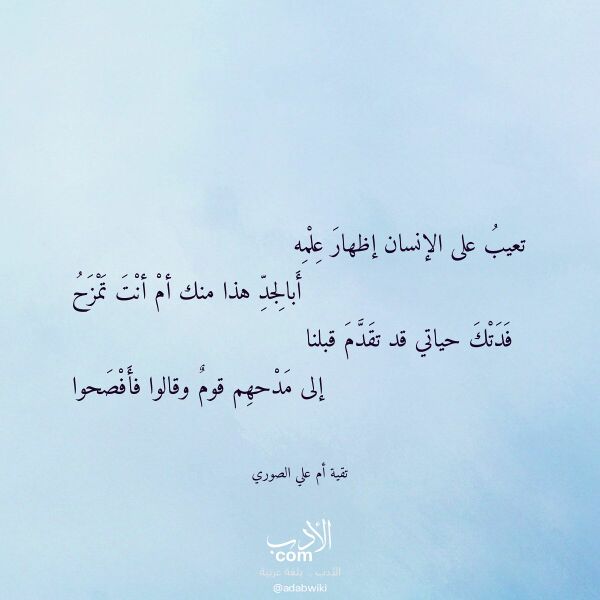 تعيبُ على الإنسان إظهارَ عِلْمِه
أَبالِجدِّ هذا منك أمْ أنْتَ تَمْزَحُ
فَدَتْكَ حياتي قد تقَدَّمَ قبلنا
إلى مَدْحهِم قومٌ وقالوا فأَفْصَحوا
تقية أم علي الصوري
الأدب
com
الأدب .. بلغة عربية
@adabwiki